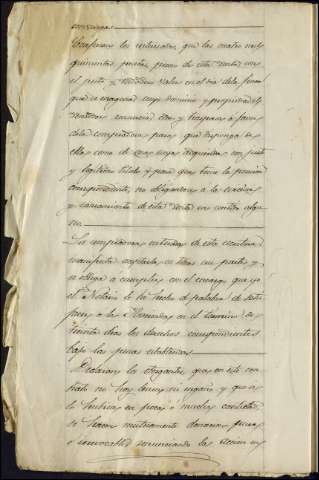 Confiesan los interesados, que las cuatro mil
quinientas pesetas, precio de esta venta son
el justo y verdadero valor en el dia de la finca
que se enagena cuyo dominio y propiedad el
vendedor renuncia cede y traspasa a favor
de la compradora para que disponga de
ella como de cosa suya adquirida con justo
y legitimo titulo y para que tome la posesion
correspondiente, se obligan a la eviccion
y saneamiento de esta venta con costas
La compradora enterada de esta escritura
manifiesta aceptarla en todas sus partes y
se obliga a cumplir con el encargo que yo
el Notario le he hecho de palabra de satis
facer a la Hacienda en el termino de
treinta dias los derechos correspondientes
bajo las penas establecidas
Declaran los otorgantes, que en este con
trato no hay lesion ni engaño, y que si
lo hubiera en poca ó mucha cantidad,
se hacen mutuamente donacion pura
é irrevocable renunciando las